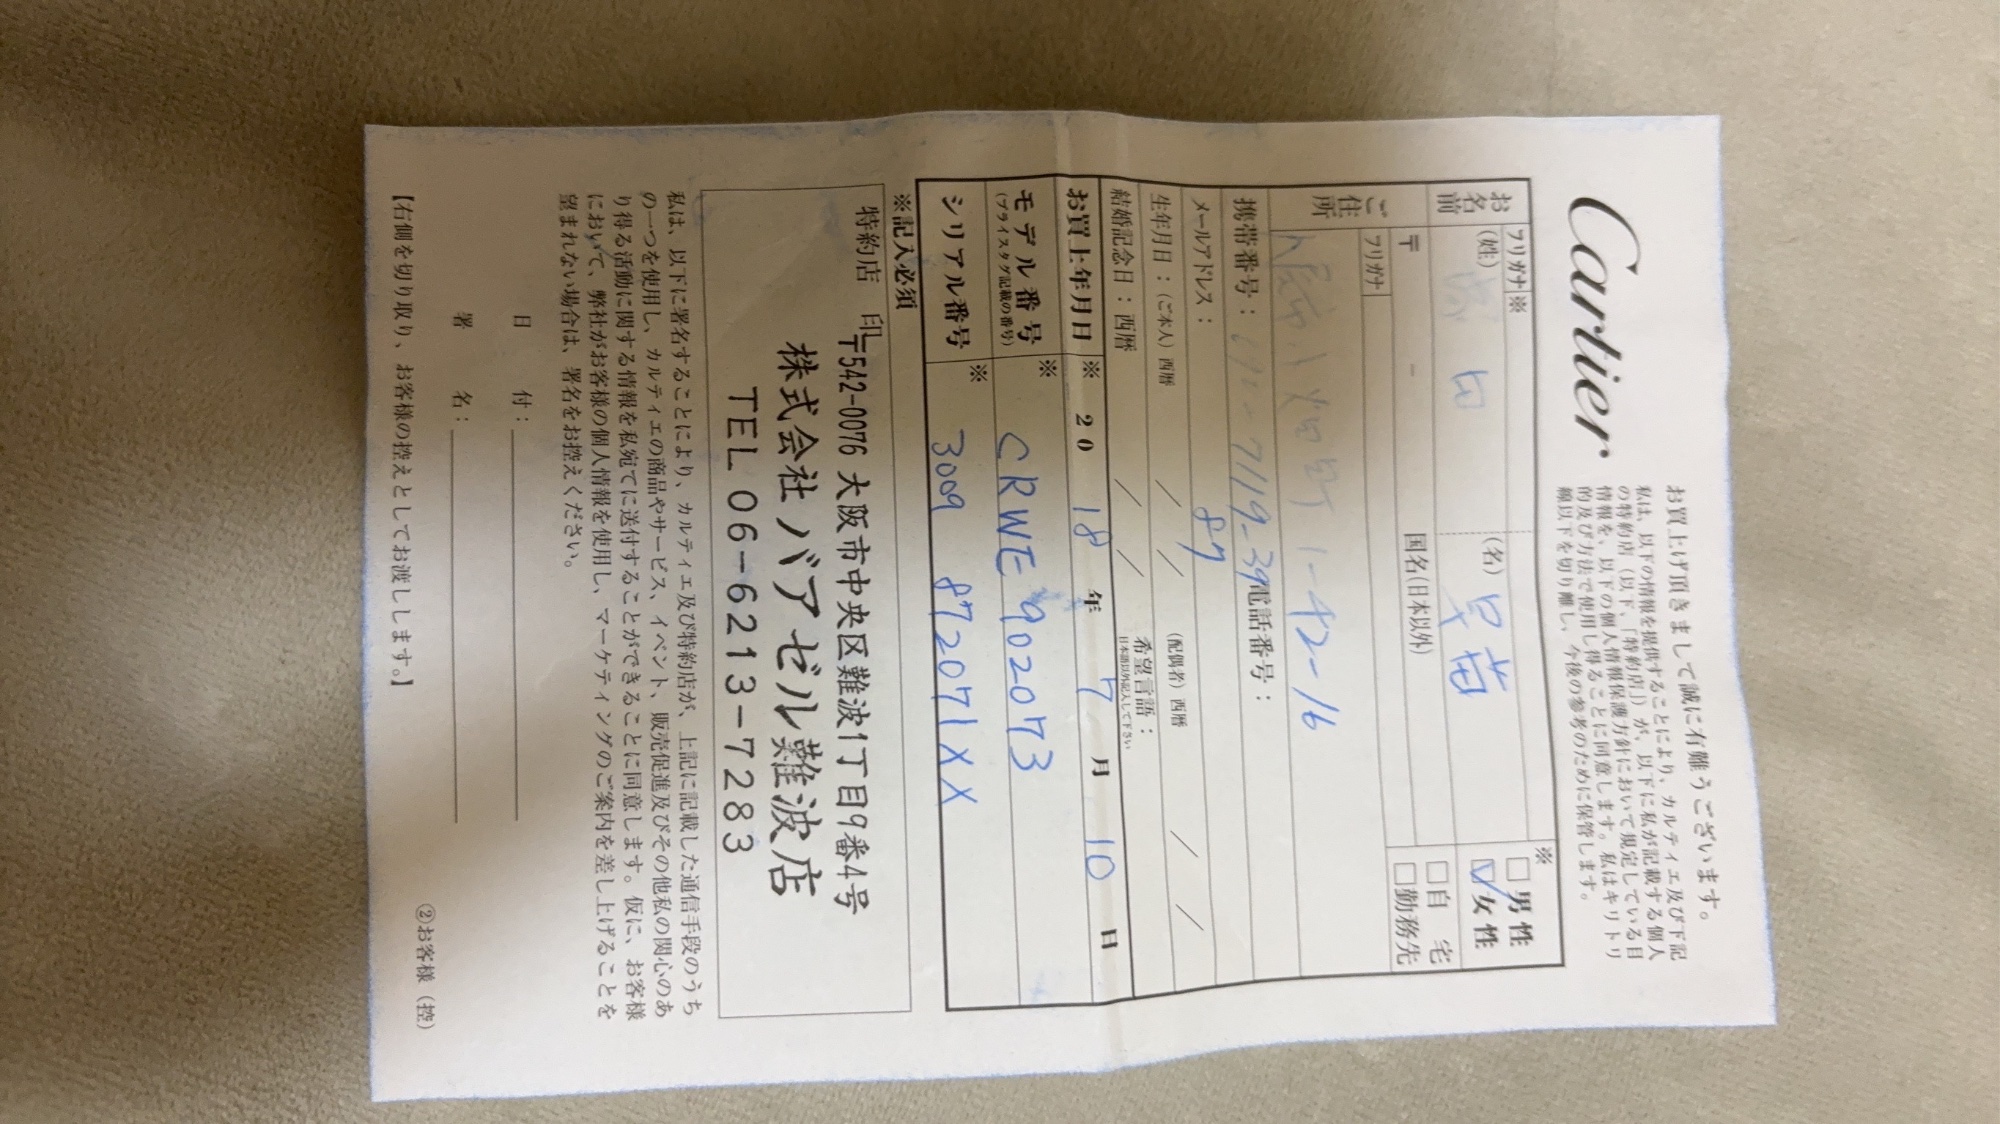 Cartier
お買上げ頂きまして誠に有難うございます。
私は、以下の情報を提供することにより、カルティエ及び下記
の特約店（以下、「特約店」）が、以下に私が記載する個人
情報を、以下の個人情報保護方針において規定している目
的及び方法で使用し得ることに同意します。私はキリトリ
線以下を切り離し、今後の参考のために保管します。
フリガナ※
お名前
(姓) 田
(名)
※
□男性
☑女性
ご住所
〒 -
国名(日本以外)
□自宅
□勤務先
フリガナ
町 1-42-16
携帯番号： -7119-39
87
電話番号：
メールアドレス：
生年月日：(ご本人) 西暦 / /
(配偶者) 西暦 / /
結婚記念日：西暦 / /
希望言語：
日本語以外記入して下さい
お買上年月日 ※ 20 18 年 7 月 10 日
モデル番号 ※ CRWE 902073
(プライスタグ記載の番号)
シリアル番号 ※ 3009 872071XX
※記入必須
特約店 印
〒542-0076 大阪市中央区難波1丁目9番4号
株式会社 バアゼル難波店
TEL 06-6213-7283
私は、以下に署名することにより、カルティエ及び特約店が、上記に記載した通信手段のうち
の一つを使用し、カルティエの商品やサービス、イベント、販売促進及びその他私の関心のあ
り得る活動に関する情報を私宛てに送付することができることに同意します。仮に、お客様
において、弊社がお客様の個人情報を使用し、マーケティングのご案内を差し上げることを
望まれない場合は、署名をお控えください。
日 付：
署 名：
②お客様（控）
【右側を切り取り、お客様の控えとしてお渡しします。】